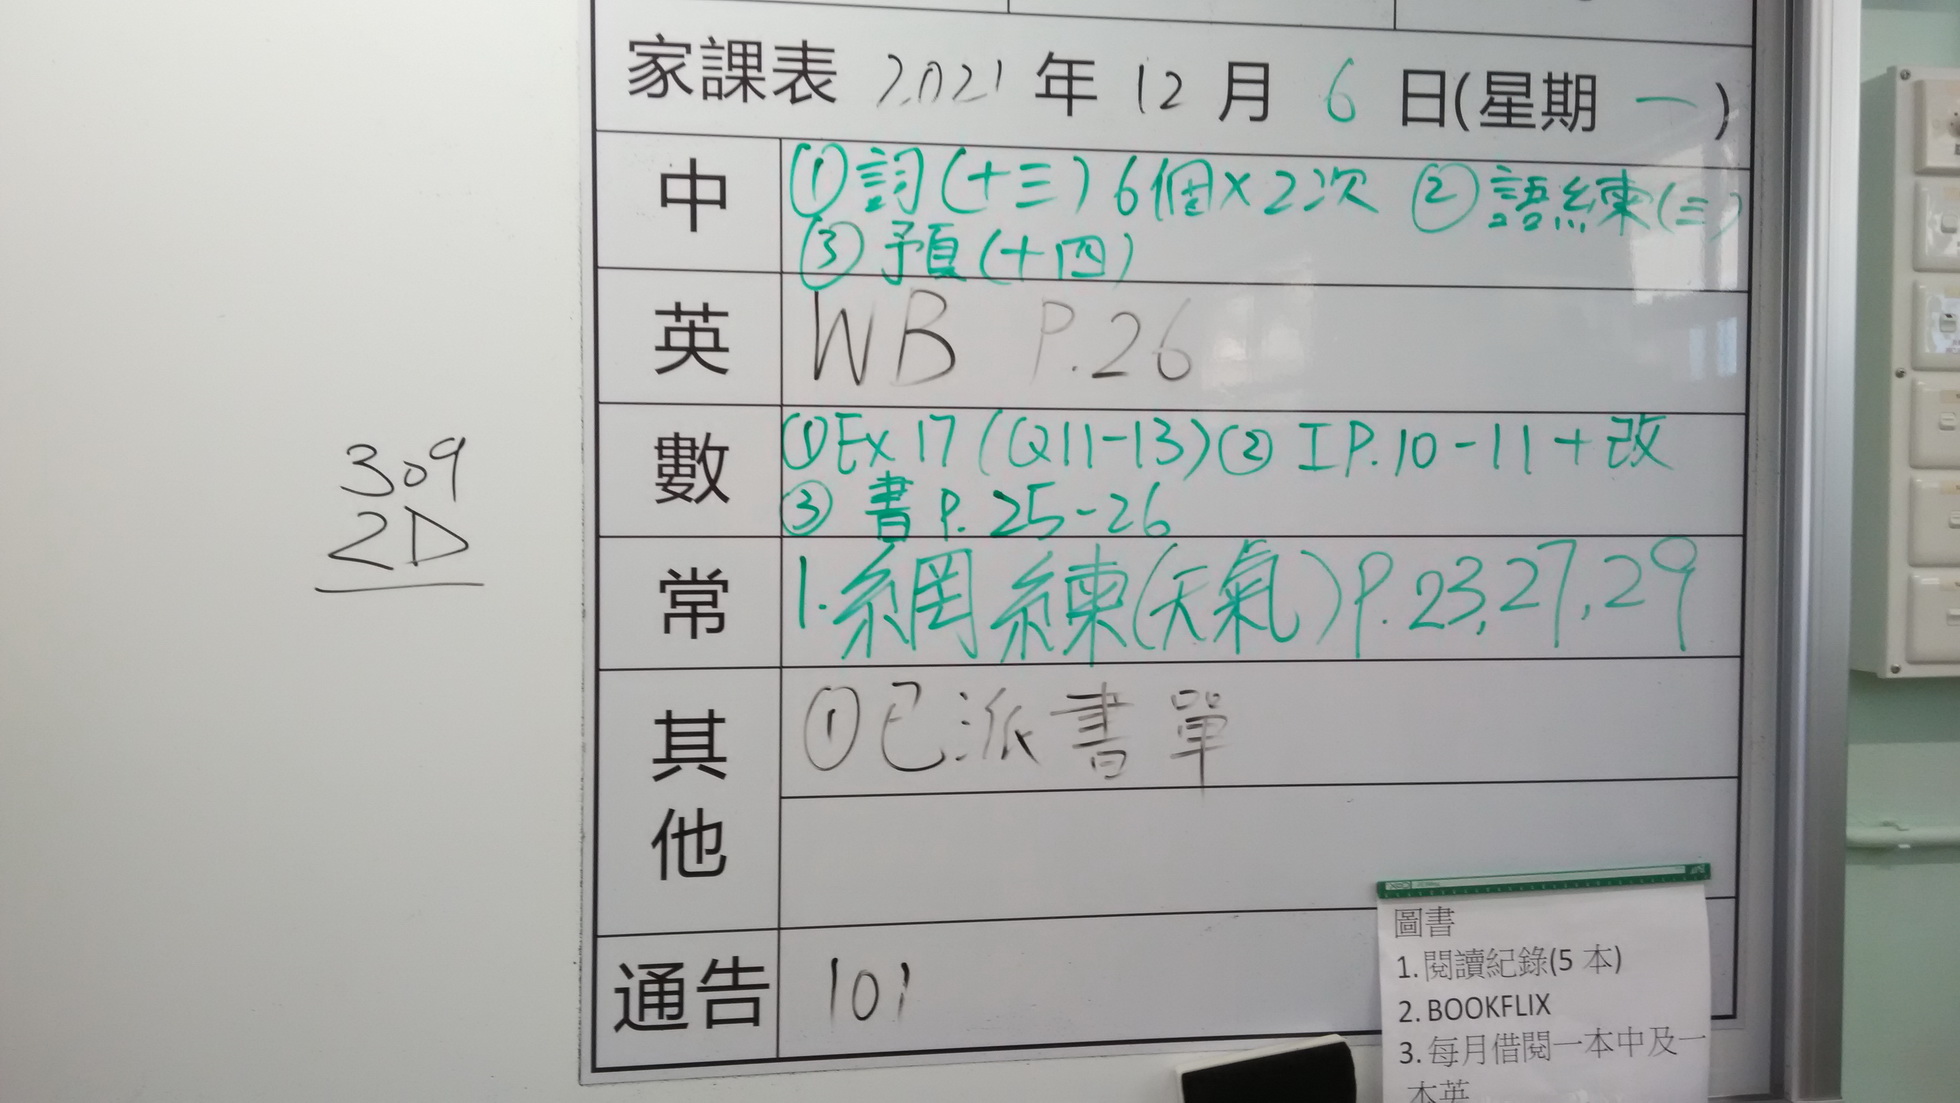 309
2D
家課表 2021 年 12 月 6 日(星期 一)
中 ①詞(十三)6個×2次 ②語練(三)
③預(十四)
英 WB P.26
數 ①Ex 17 (Q11-13) ② I P.10-11+改
③ 書 P. 25-26
常 1.網練(天氣)P.23,27,29
其他 ①已派書單
通告 101
圖書
1. 閱讀紀錄(5 本)
2. BOOKFLIX
3. 每月借閱一本中及一
本英